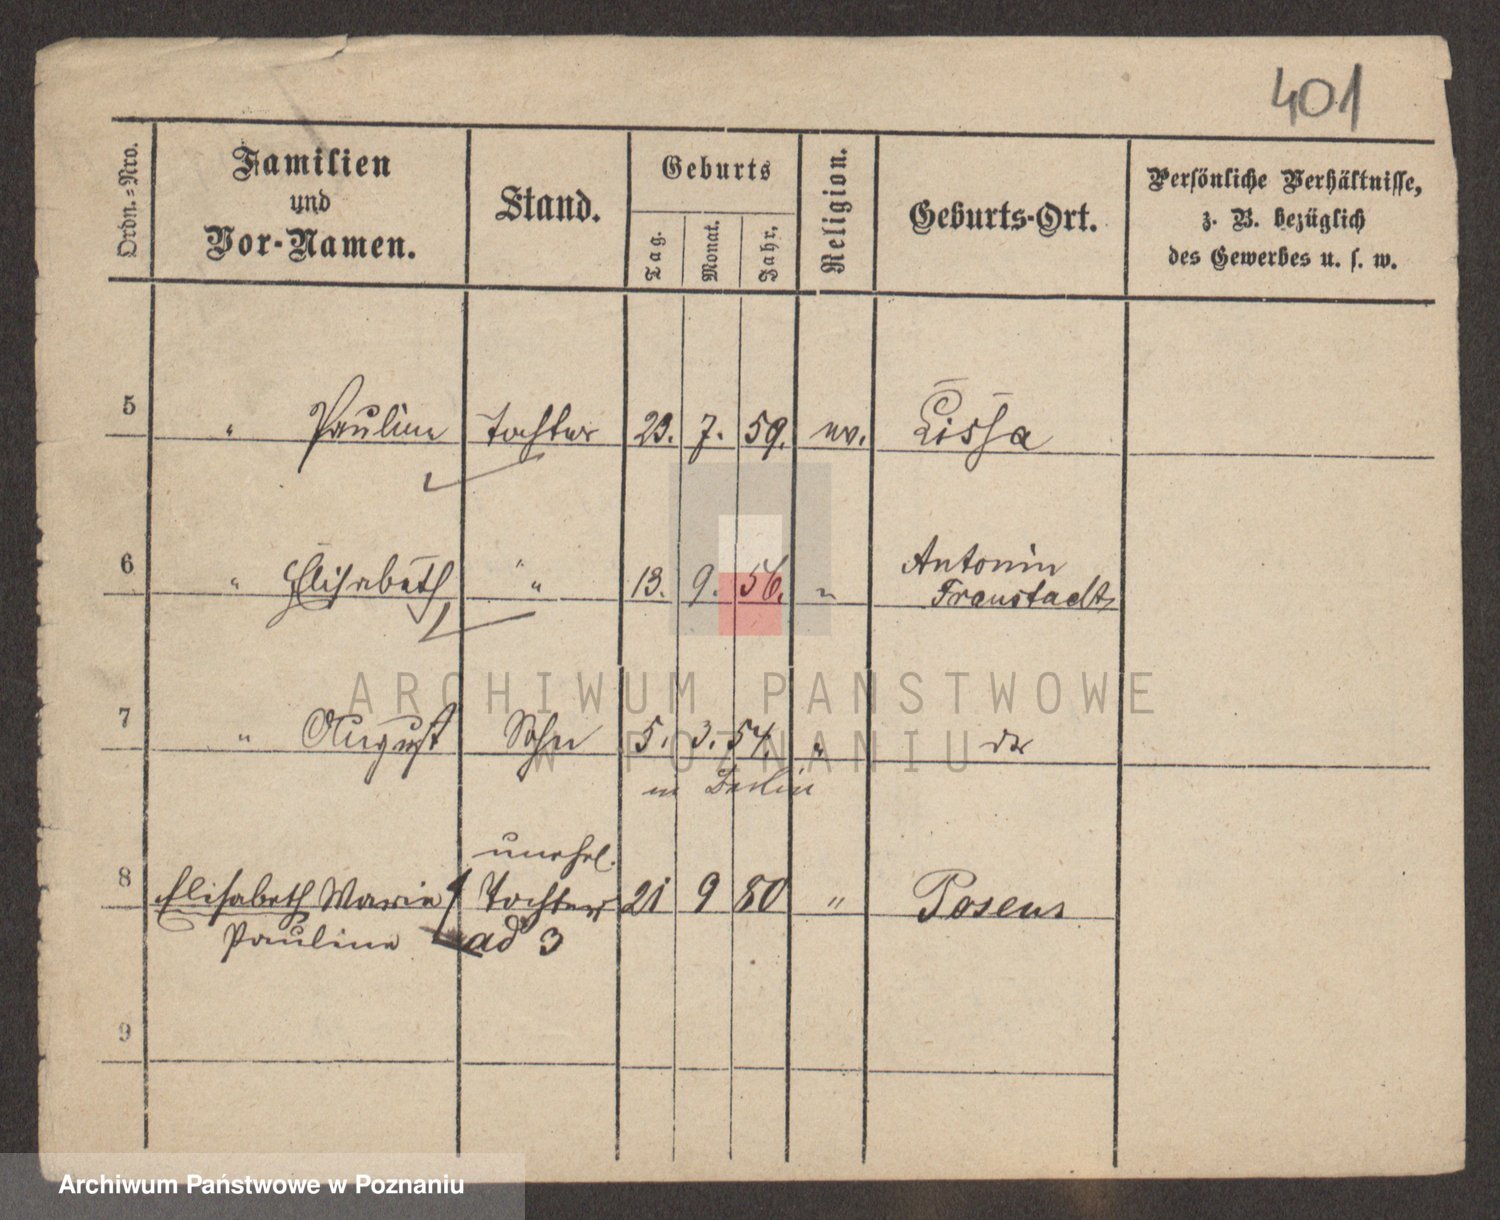 401
Ordn.-Nro.
Familien
und
Vor-Namen.
Stand.
Geburts
Tag.
Monat.
Jahr.
Religion.
Geburts-Ort.
Persönliche Verhältnisse,
z. B. bezüglich
des Gewerbes u. s. w.
5 " Pauline Tochter 23. 7. 59. ev. Lissa
6 " Elisabeth " " 13. 9. 56. " Antonin
Fraustadt
7 " August Sohn 5. 3. 54. "
in Berlin
unehl.
8 Elisabeth Marie Tochter 21 9 80 " Posen
Pauline ad 3
9
ARCHIWUM PAŃSTWOWE
W POZNANIU
Archiwum Państwowe w Poznaniu